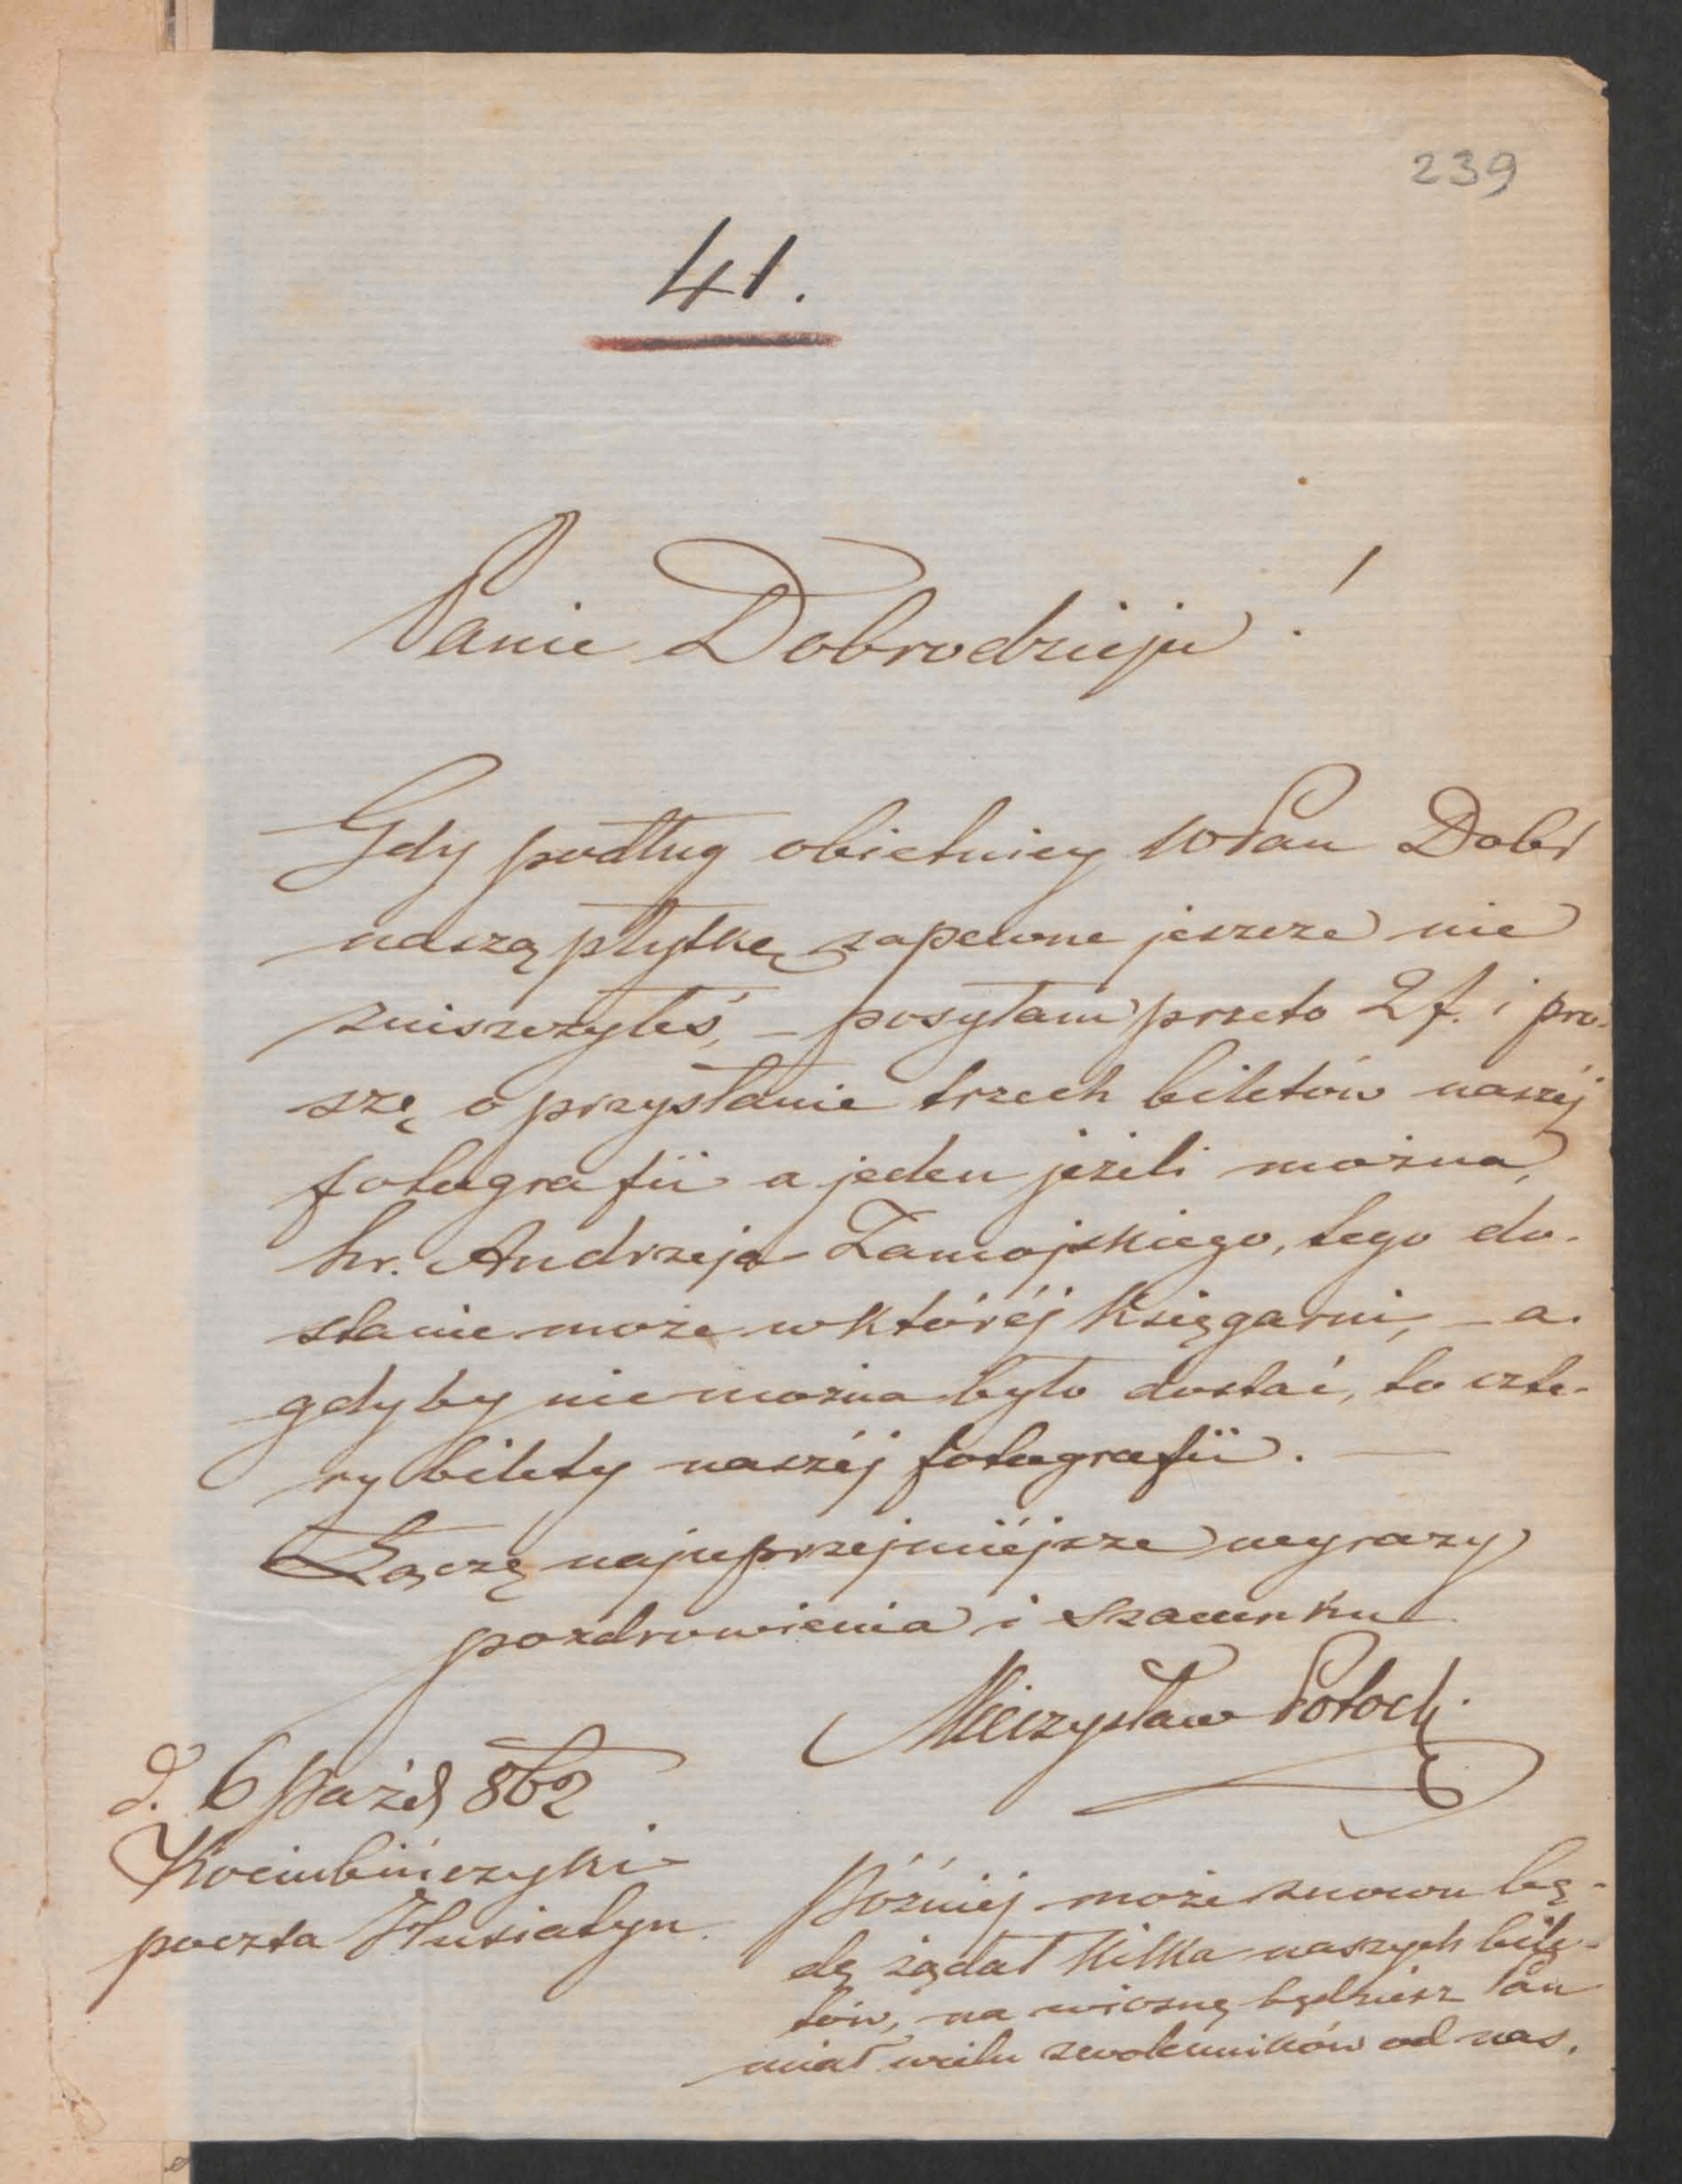 239
41.
Panie Dobrodzieju!
Gdy podług obietnicy WPan Dobr
naszą płytkę zapewne jeszcze nie
zniszczyłeś, – posyłam przeto 2 f. i pro-
szę o przysłanie trzech biletów naszéj
fotografii a jeden jeżeli można,
hr. Andrzeja Zamojskiego, tego do-
stanie może w któréj Księgarni, – a
gdyby nie można było dostać, to czte-
ry bilety naszéj fotografii. —
Łączę najuprzejmiéjsze wyrazy
pozdrowienia i szacunku
Mieczysław Potocki
d. 6 Paźd 862
Kociubińczyki
poczta Husiatyn
Późniéj może znowu bę-
dę żądał kilka naszych bile-
tów, na wiosnę będziesz Pan
miał wielu zwolenników od nas.